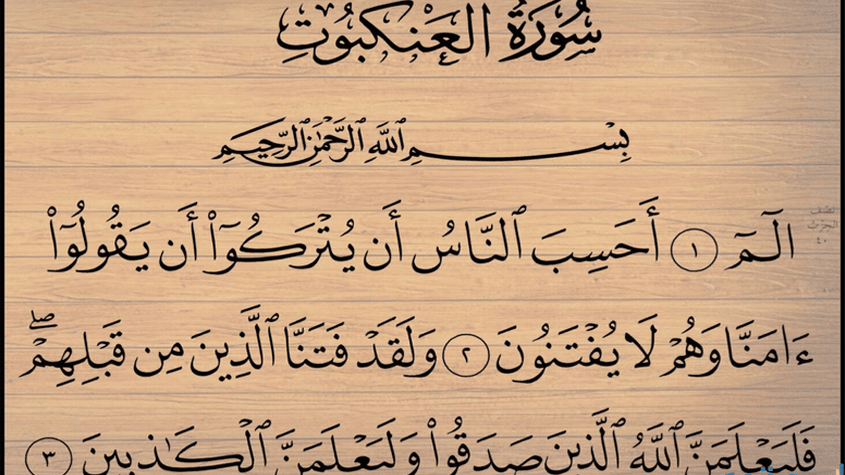 سُورَةُ العَنكَبُوتِ
بِسْمِ ٱللَّهِ ٱلرَّحْمَٰنِ ٱلرَّحِيمِ
الٓمٓ ١ أَحَسِبَ ٱلنَّاسُ أَن يُتْرَكُوٓا۟ أَن يَقُولُوٓا۟
نصف
الحزب
٤٠
ءَامَنَّا وَهُمْ لَا يُفْتَنُونَ ٢ وَلَقَدْ فَتَنَّا ٱلَّذِينَ مِن قَبْلِهِمْ ۖ
فَلَيَعْلَمَنَّ ٱللَّهُ ٱلَّذِينَ صَدَقُوا۟ وَلَيَعْلَمَنَّ ٱلْكَٰذِبِينَ ٣